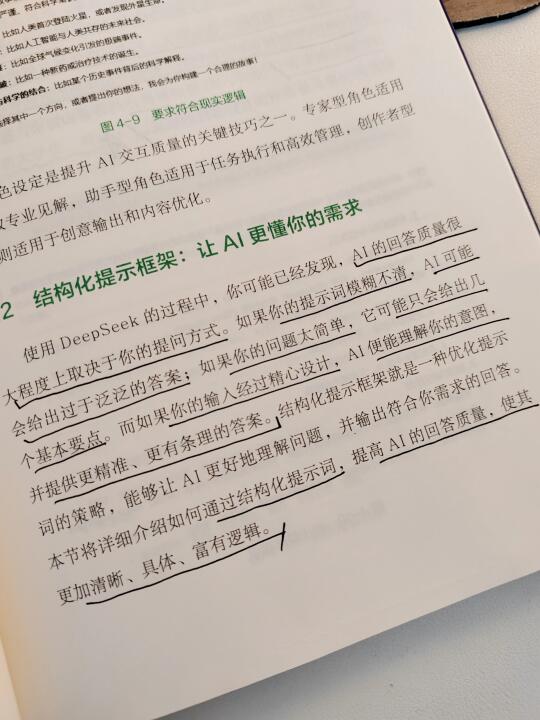 严谨，符合科学
：比如人类首次登陆火星，或者发现外星生命。
：比如人工智能与人类共存的未来社会。
：比如全球气候变化引发的极端事件。
：比如一种新药或治疗技术的诞生。
与科学的结合：比如某个历史事件背后的科学解释。
选择其中一个方向，或者提出你的想法，我会为你构建一个合理的故事！
图 4-9 要求符合现实逻辑
色设定是提升 AI 交互质量的关键技巧之一。专家型角色适用
专业见解，助手型角色适用于任务执行和高效管理，创作者型
则适用于创意输出和内容优化。
2 结构化提示框架：让 AI 更懂你的需求
使用 DeepSeek 的过程中，你可能已经发现，AI 的回答质量很
大程度上取决于你的提问方式。如果你的提示词模糊不清，AI 可能
会给出过于泛泛的答案；如果你的问题太简单，它可能只会给出几
个基本要点。而如果你的输入经过精心设计，AI 便能理解你的意图，
并提供更精准、更有条理的答案。结构化提示框架就是一种优化提示
词的策略，能够让 AI 更好地理解问题，并输出符合你需求的回答。
本节将详细介绍如何通过结构化提示词，提高 AI 的回答质量，使其
更加清晰、具体、富有逻辑。